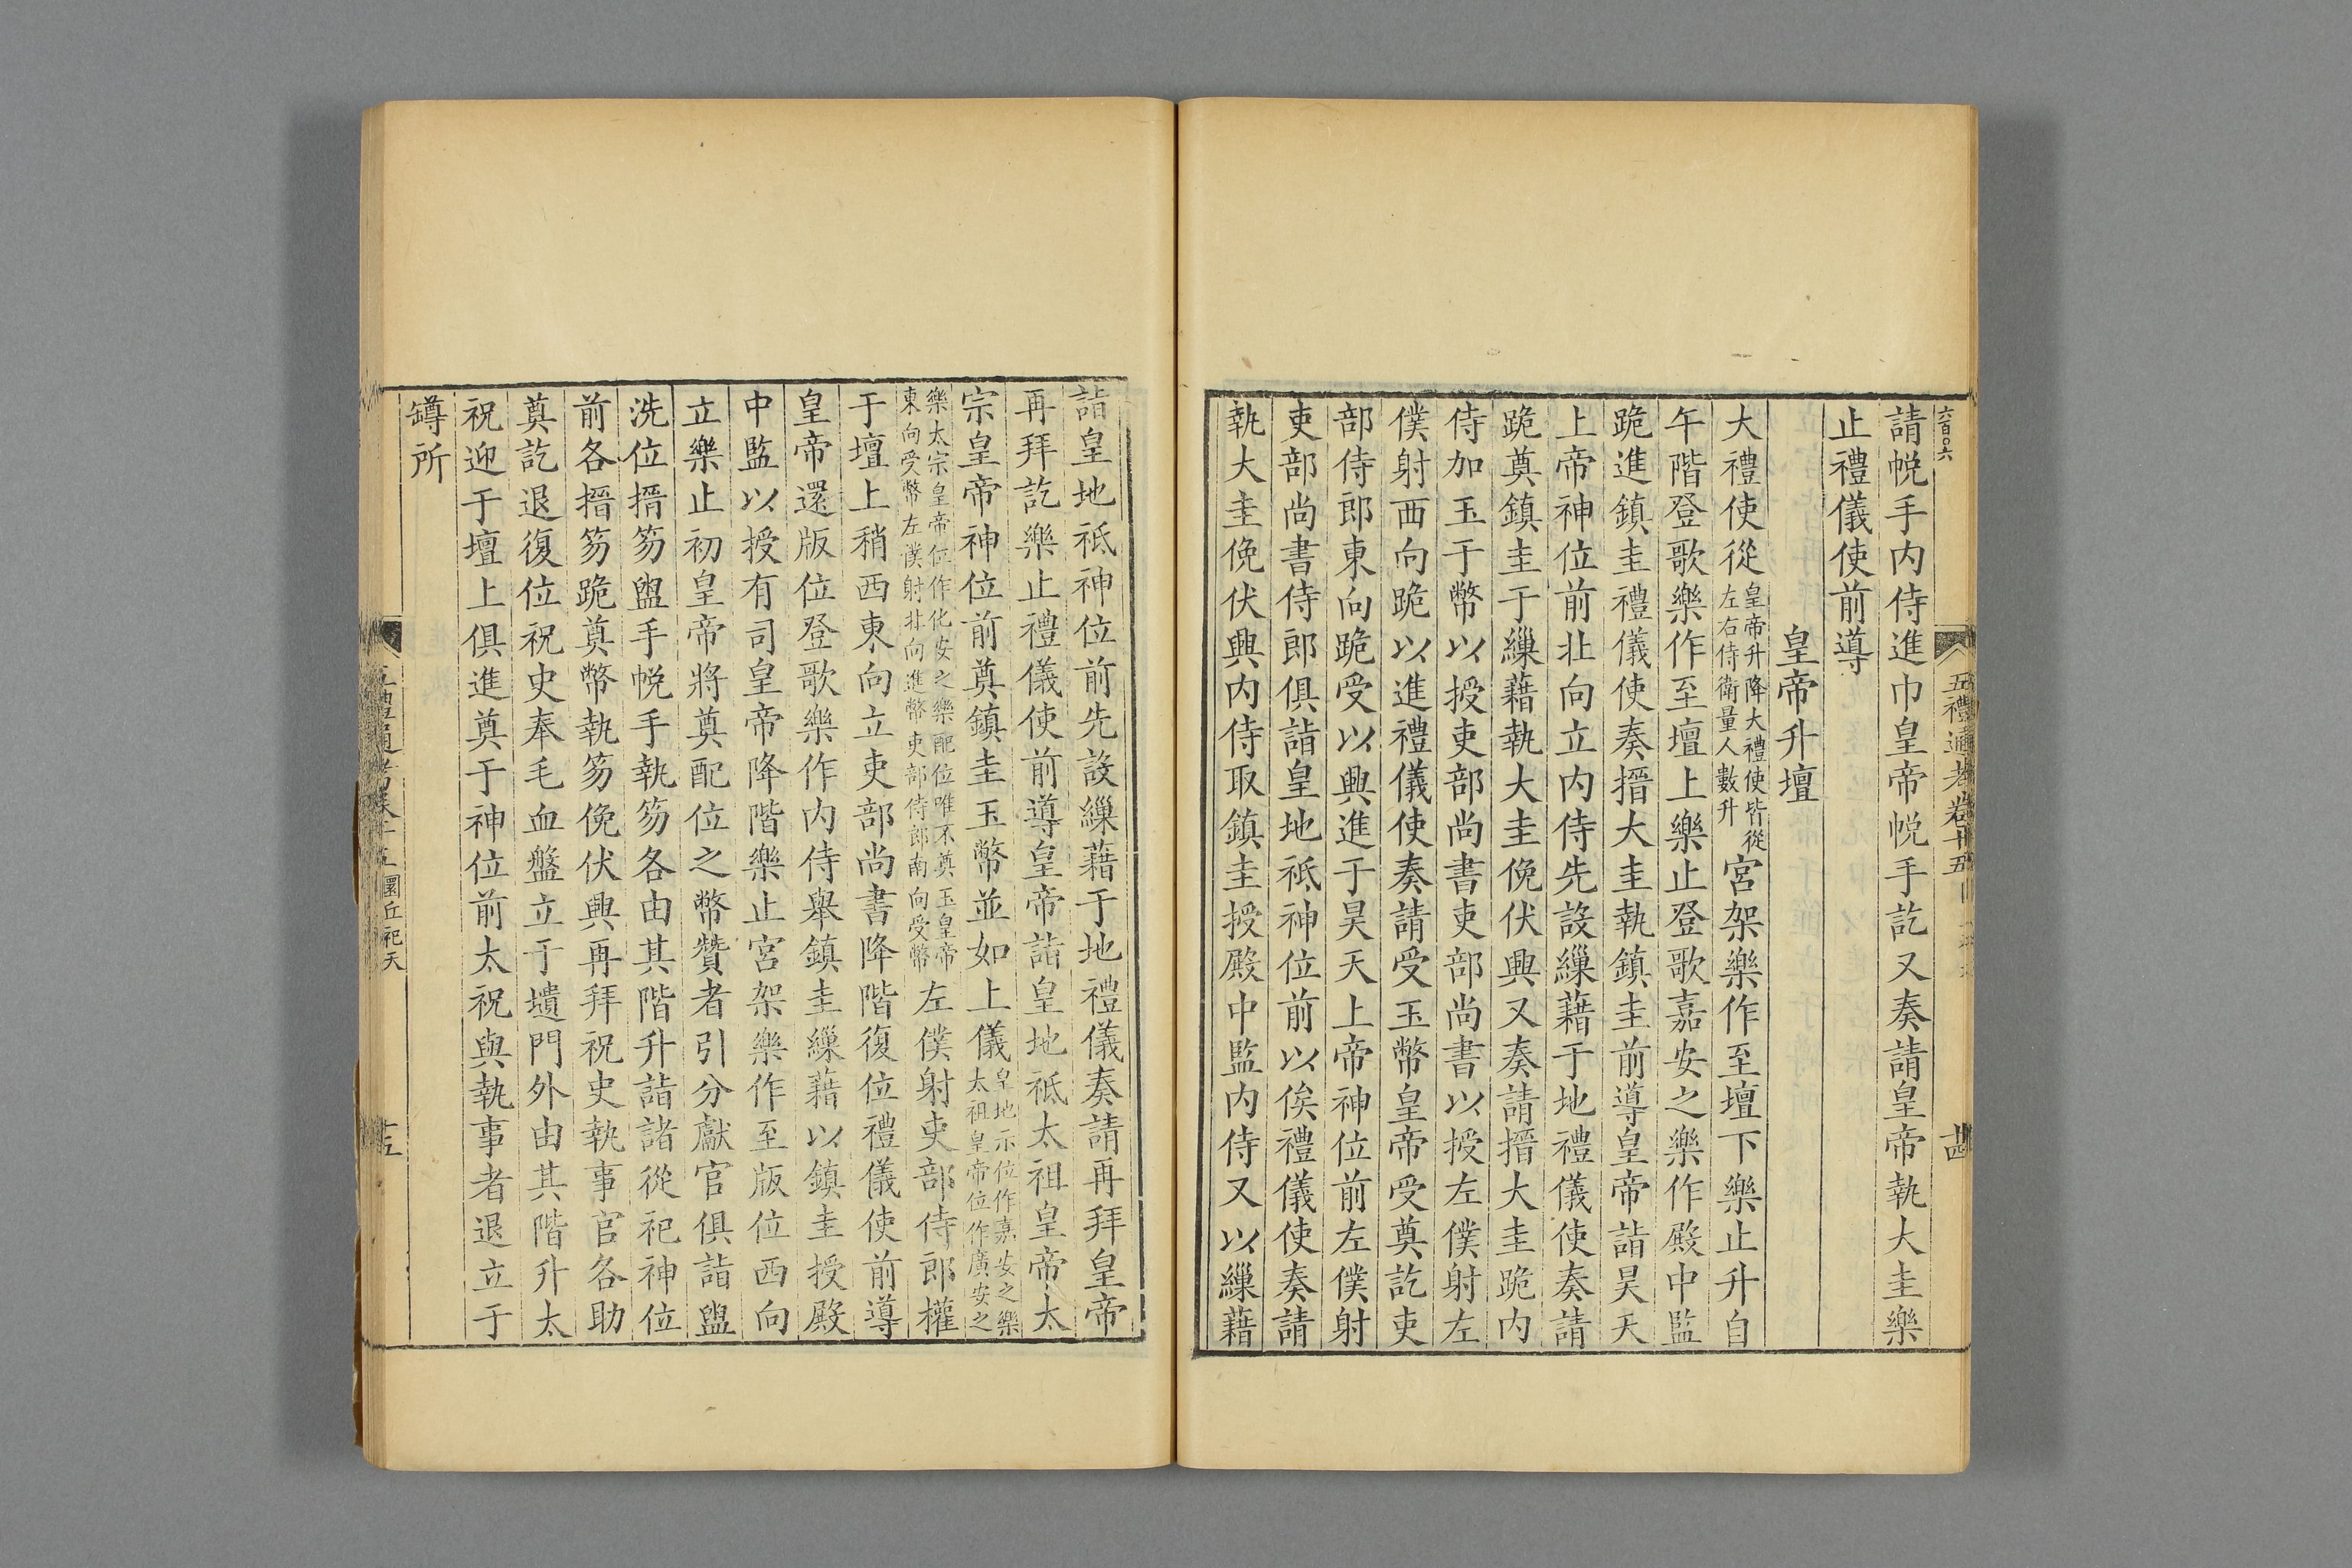 六百〇六
五禮通考卷十五
請帨手内侍進巾皇帝帨手訖又奏請皇帝執大圭樂
止禮儀使前導
皇帝升壇
大禮使從
皇帝升降大禮使皆從
左右侍衛量人數升
宮架樂作至壇下樂止升自
午階登歌樂作至壇上樂止登歌嘉安之樂作殿中監
跪進鎮圭禮儀使奏搢大圭執鎮圭前導皇帝詣昊天
上帝神位前北向立内侍先設繅藉于地禮儀使奏請
跪奠鎮圭于繅藉執大圭俛伏興又奏請搢大圭跪内
侍加玉于幣以授吏部尚書吏部尚書以授左僕射左
僕射西向跪以進禮儀使奏請受玉幣皇帝受奠訖吏
部侍郎東向跪受以興進于昊天上帝神位前左僕射
吏部尚書侍郎俱詣皇地祗神位前以俟禮儀使奏請
執大圭俛伏興内侍取鎮圭授殿中監内侍又以繅藉
詣皇地祗神位前先設繅藉于地禮儀奏請再拜皇帝
再拜訖樂止禮儀使前導皇帝詣皇地祗太祖皇帝太
宗皇帝神位前奠鎮圭玉幣並如上儀
皇地示位作嘉安之樂
太祖皇帝位作廣安之
樂太宗皇帝位作化安之樂配位唯不奠玉皇帝
東向受幣左僕射北向進幣吏部侍郎南向受幣
左僕射吏部侍郎權
于壇上稍西東向立吏部尚書降階復位禮儀使前導
皇帝還版位登歌樂作内侍舉鎮圭繅藉以鎮圭授殿
中監以授有司皇帝降階樂止宮架樂作至版位西向
立樂止初皇帝將奠配位之幣贊者引分獻官俱詣盥
洗位搢笏盥手帨手執笏各由其階升詣諸從祀神位
前各搢笏跪奠幣執笏俛伏興再拜祝史執事官各助
奠訖退復位祝史奉毛血盤立于壝門外由其階升太
祝迎于壇上俱進奠于神位前太祝與執事者退立于
罇所
圜丘祀天